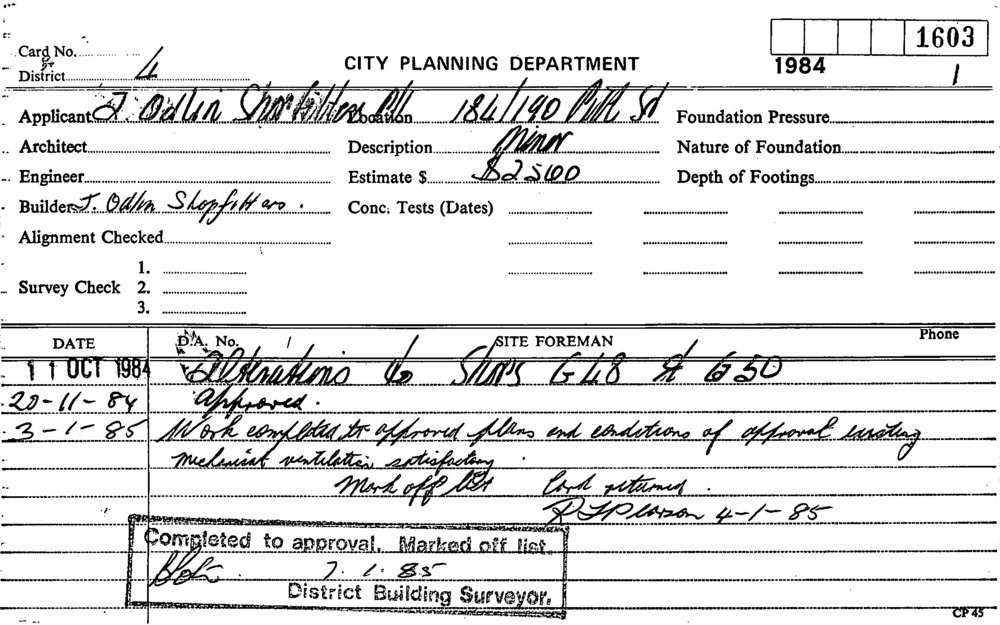 1603
Card No.
CITY PLANNING DEPARTMENT
1984
1
District 4
Applicant J. Odlin Shopfitters P/L Location 184/190 Pitt St Foundation Pressure
Architect Description Minor Nature of Foundation
Engineer Estimate $ $2500 Depth of Footings
Builder J. Odlin Shopfitters. Conc. Tests (Dates)
Alignment Checked
1.
Survey Check 2.
3.
DATE D.A. No. SITE FOREMAN Phone
11 OCT 1984 Alterations to Shops G48 & G50
20-11-84 Approved.
3-1-85 Work completed to approved plans and conditions of approval existing
mechanical ventilation satisfactory.
Mark off list Card returned.
Pearson 4-1-85
Completed to approval. Marked off list.
7.1.85
District Building Surveyor.
CP 45